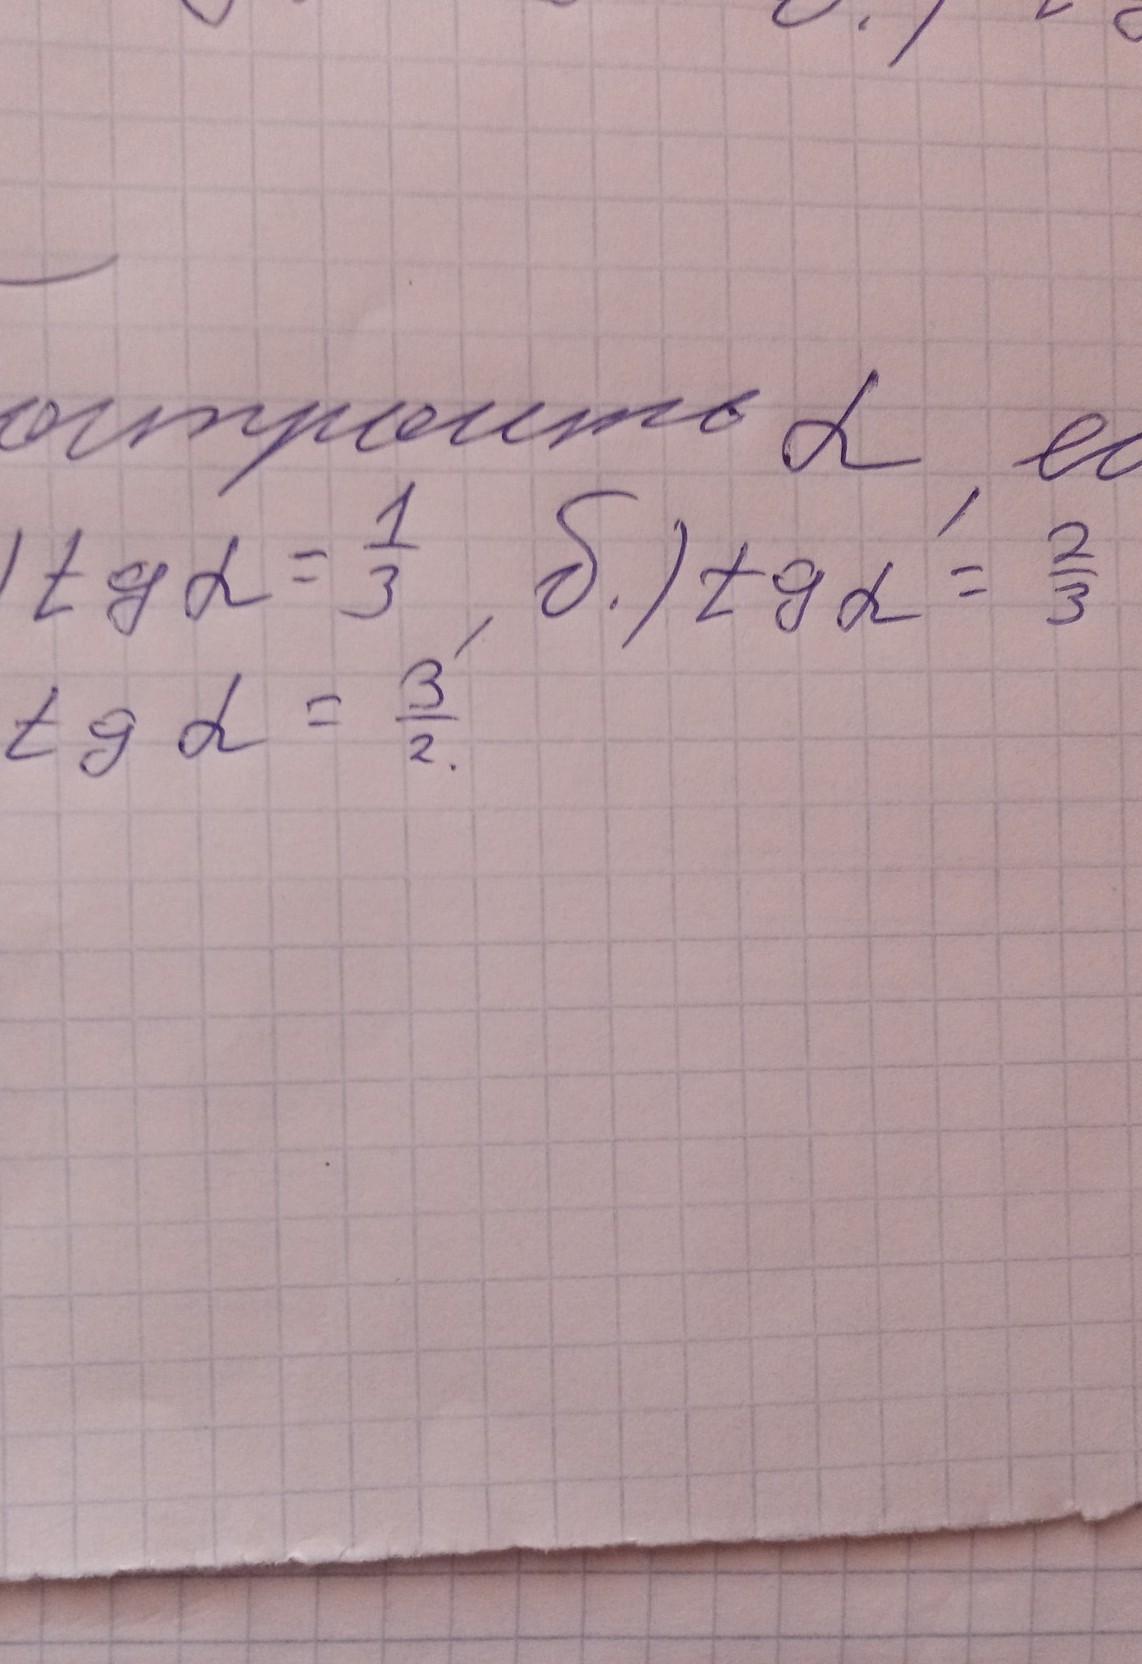 остроить α, ес
) tg α = 1/3, б.) tg α = 2/3,
tg α = 3/2.